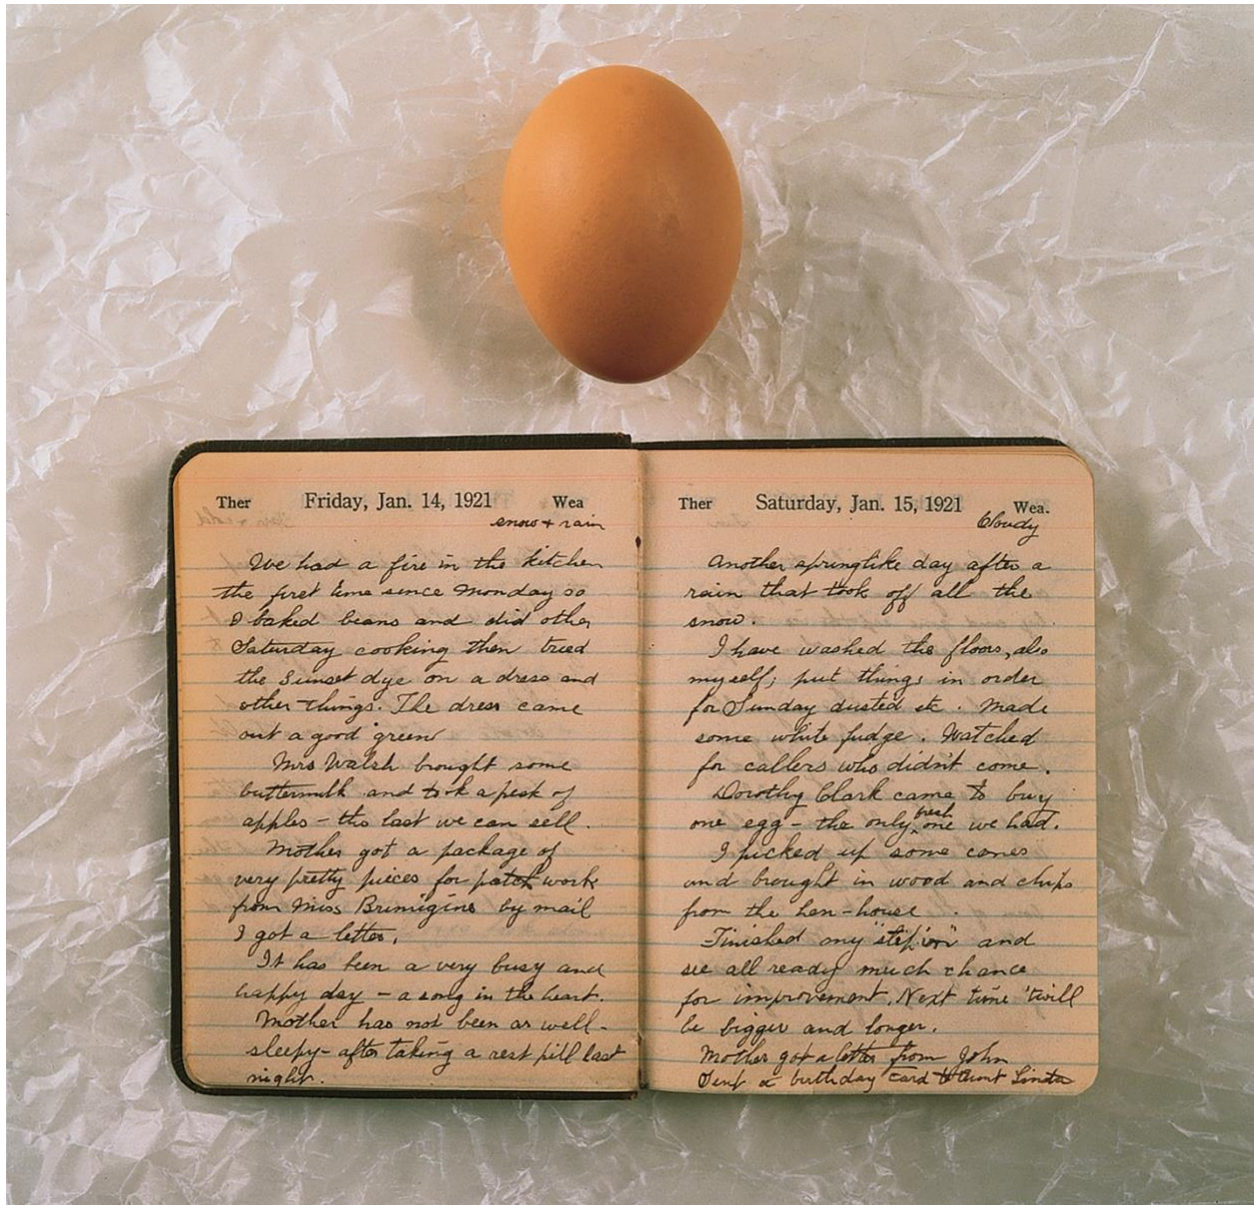 Ther Friday, Jan. 14, 1921 Wea
snow + rain
We had a fire in the kitchen
the first time since Monday so
I baked beans and did other
Saturday cooking then tried
the Sunset dye on a dress and
other things. The dress came
out a good green
Mrs Walsh brought some
buttermilk and took a peck of
apples - the last we can sell.
Mother got a package of
very pretty pieces for patch work
from Miss by mail
I got a letter.
It has been a very busy and
happy day - a song in the heart.
Mother has not been as well -
sleepy - after taking a rest pill last
night.
Ther Saturday, Jan. 15, 1921 Wea.
Cloudy
Another springlike day after a
rain that took off all the
snow.
I have washed the floors, also
myself; put things in order
for Sunday dusted etc. Made
some white fudge. Watched
for callers who didn't come.
Dorothy Clark came to buy
fresh
one egg - the only one we had.
I picked up some cones
and brought in wood and chips
from the hen-house.
Finished my "step in" and
see all ready much chance
for improvement. Next time 'twill
be bigger and longer.
Mother got a letter from John
Sent a birthday card to Aunt Linda